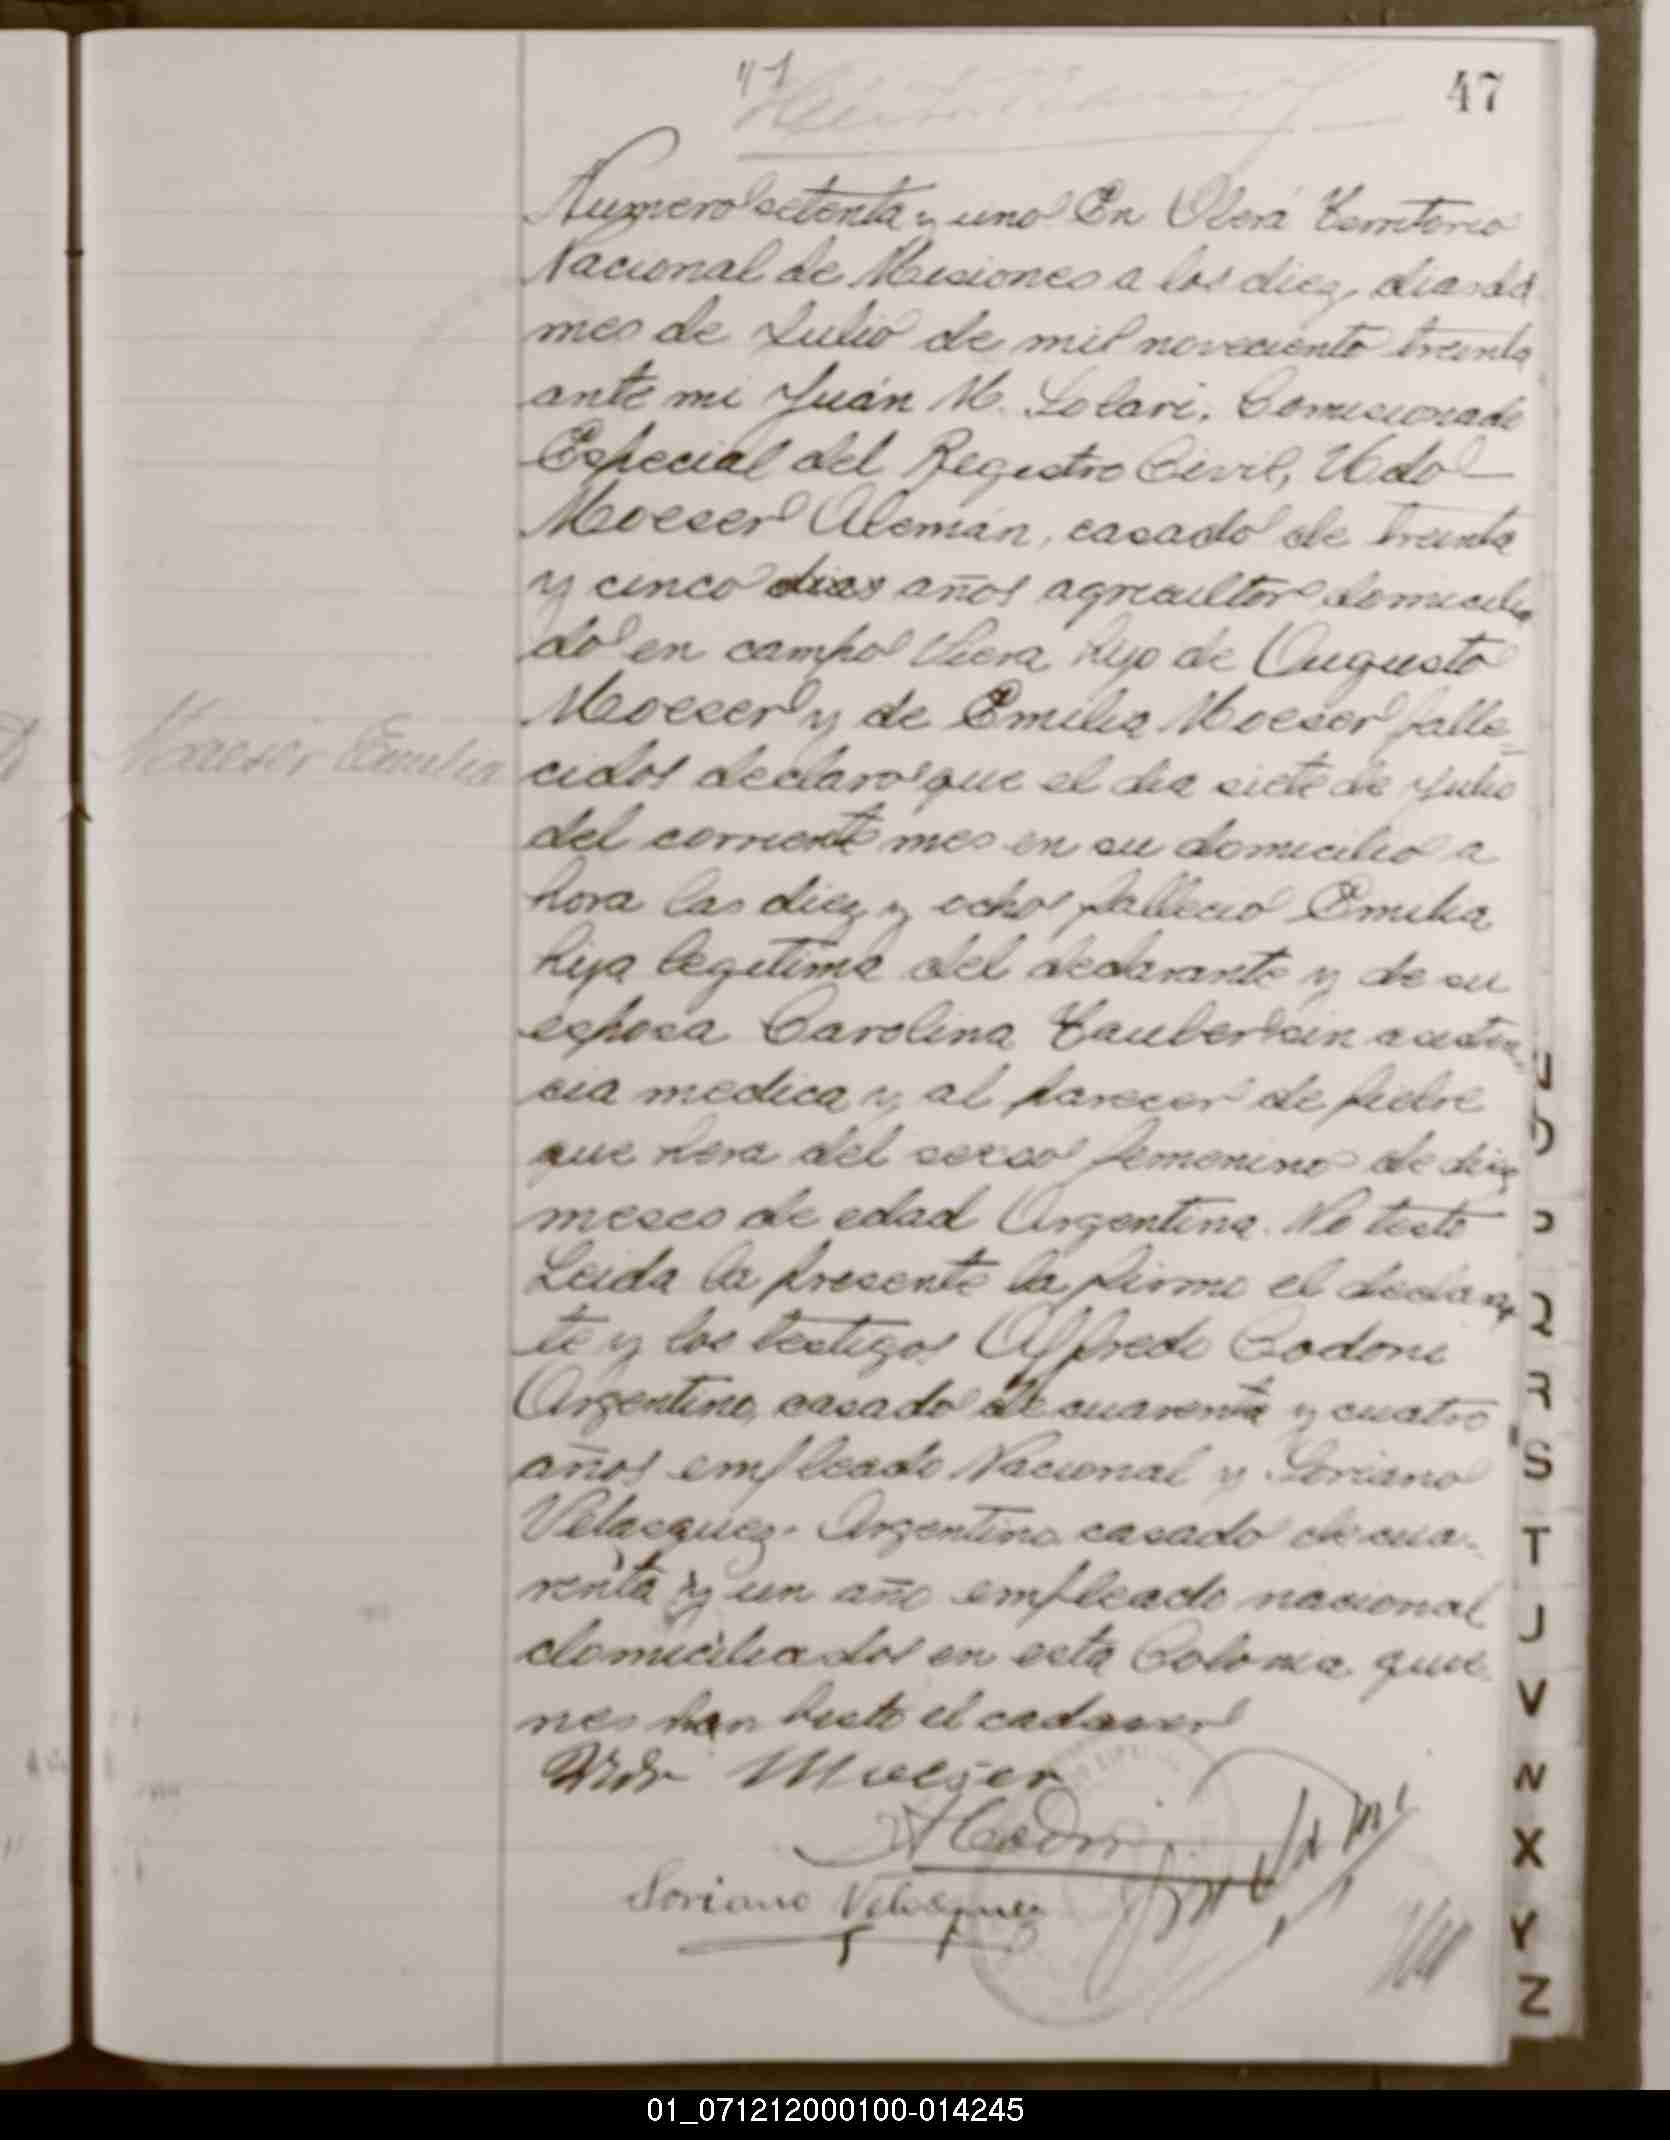 47
71
Numero setenta y uno En Oberá Territorio
Nacional de Misiones a los diez dias del
mes de Julio de mil noveciento treinta
ante mi Juán M. Solari, Comisionado
Especial del Registro Civil, Udo
Moeser Alemán, casado de treinta
y cinco dias años agricultor domicilia
do en campo Viera hijo de Augusto
Moeser y de Emilia Moeser falle-
cidos declaro que el dia siete de Julio
Moeser Emilia
del corriente mes en su domicilio a
hora las diez y ocho fallecio Emilia
hija legitima del declarante y de su
esposa Carolina Tauber sin asisten
cia medica y al parecer de fiebre
que hera del secso femenino de diez
meses de edad Argentina. No testo
Leida la presente la firmo el declaran
te y los testigos Alfredo Codoni
Argentino, casado de cuarenta y cuatro
años empleado Nacional y Soriano
Velasquez. Argentino casado de cua-
renta y un año empleado nacional
domiciliados en esta Colonia quie
nes han bisto el cadaver
Udo Moeser
A Codoni
Soriano Velasquez
N
O
P
Q
R
S
T
J
V
N
X
Y
Z
01_071212000100-014245